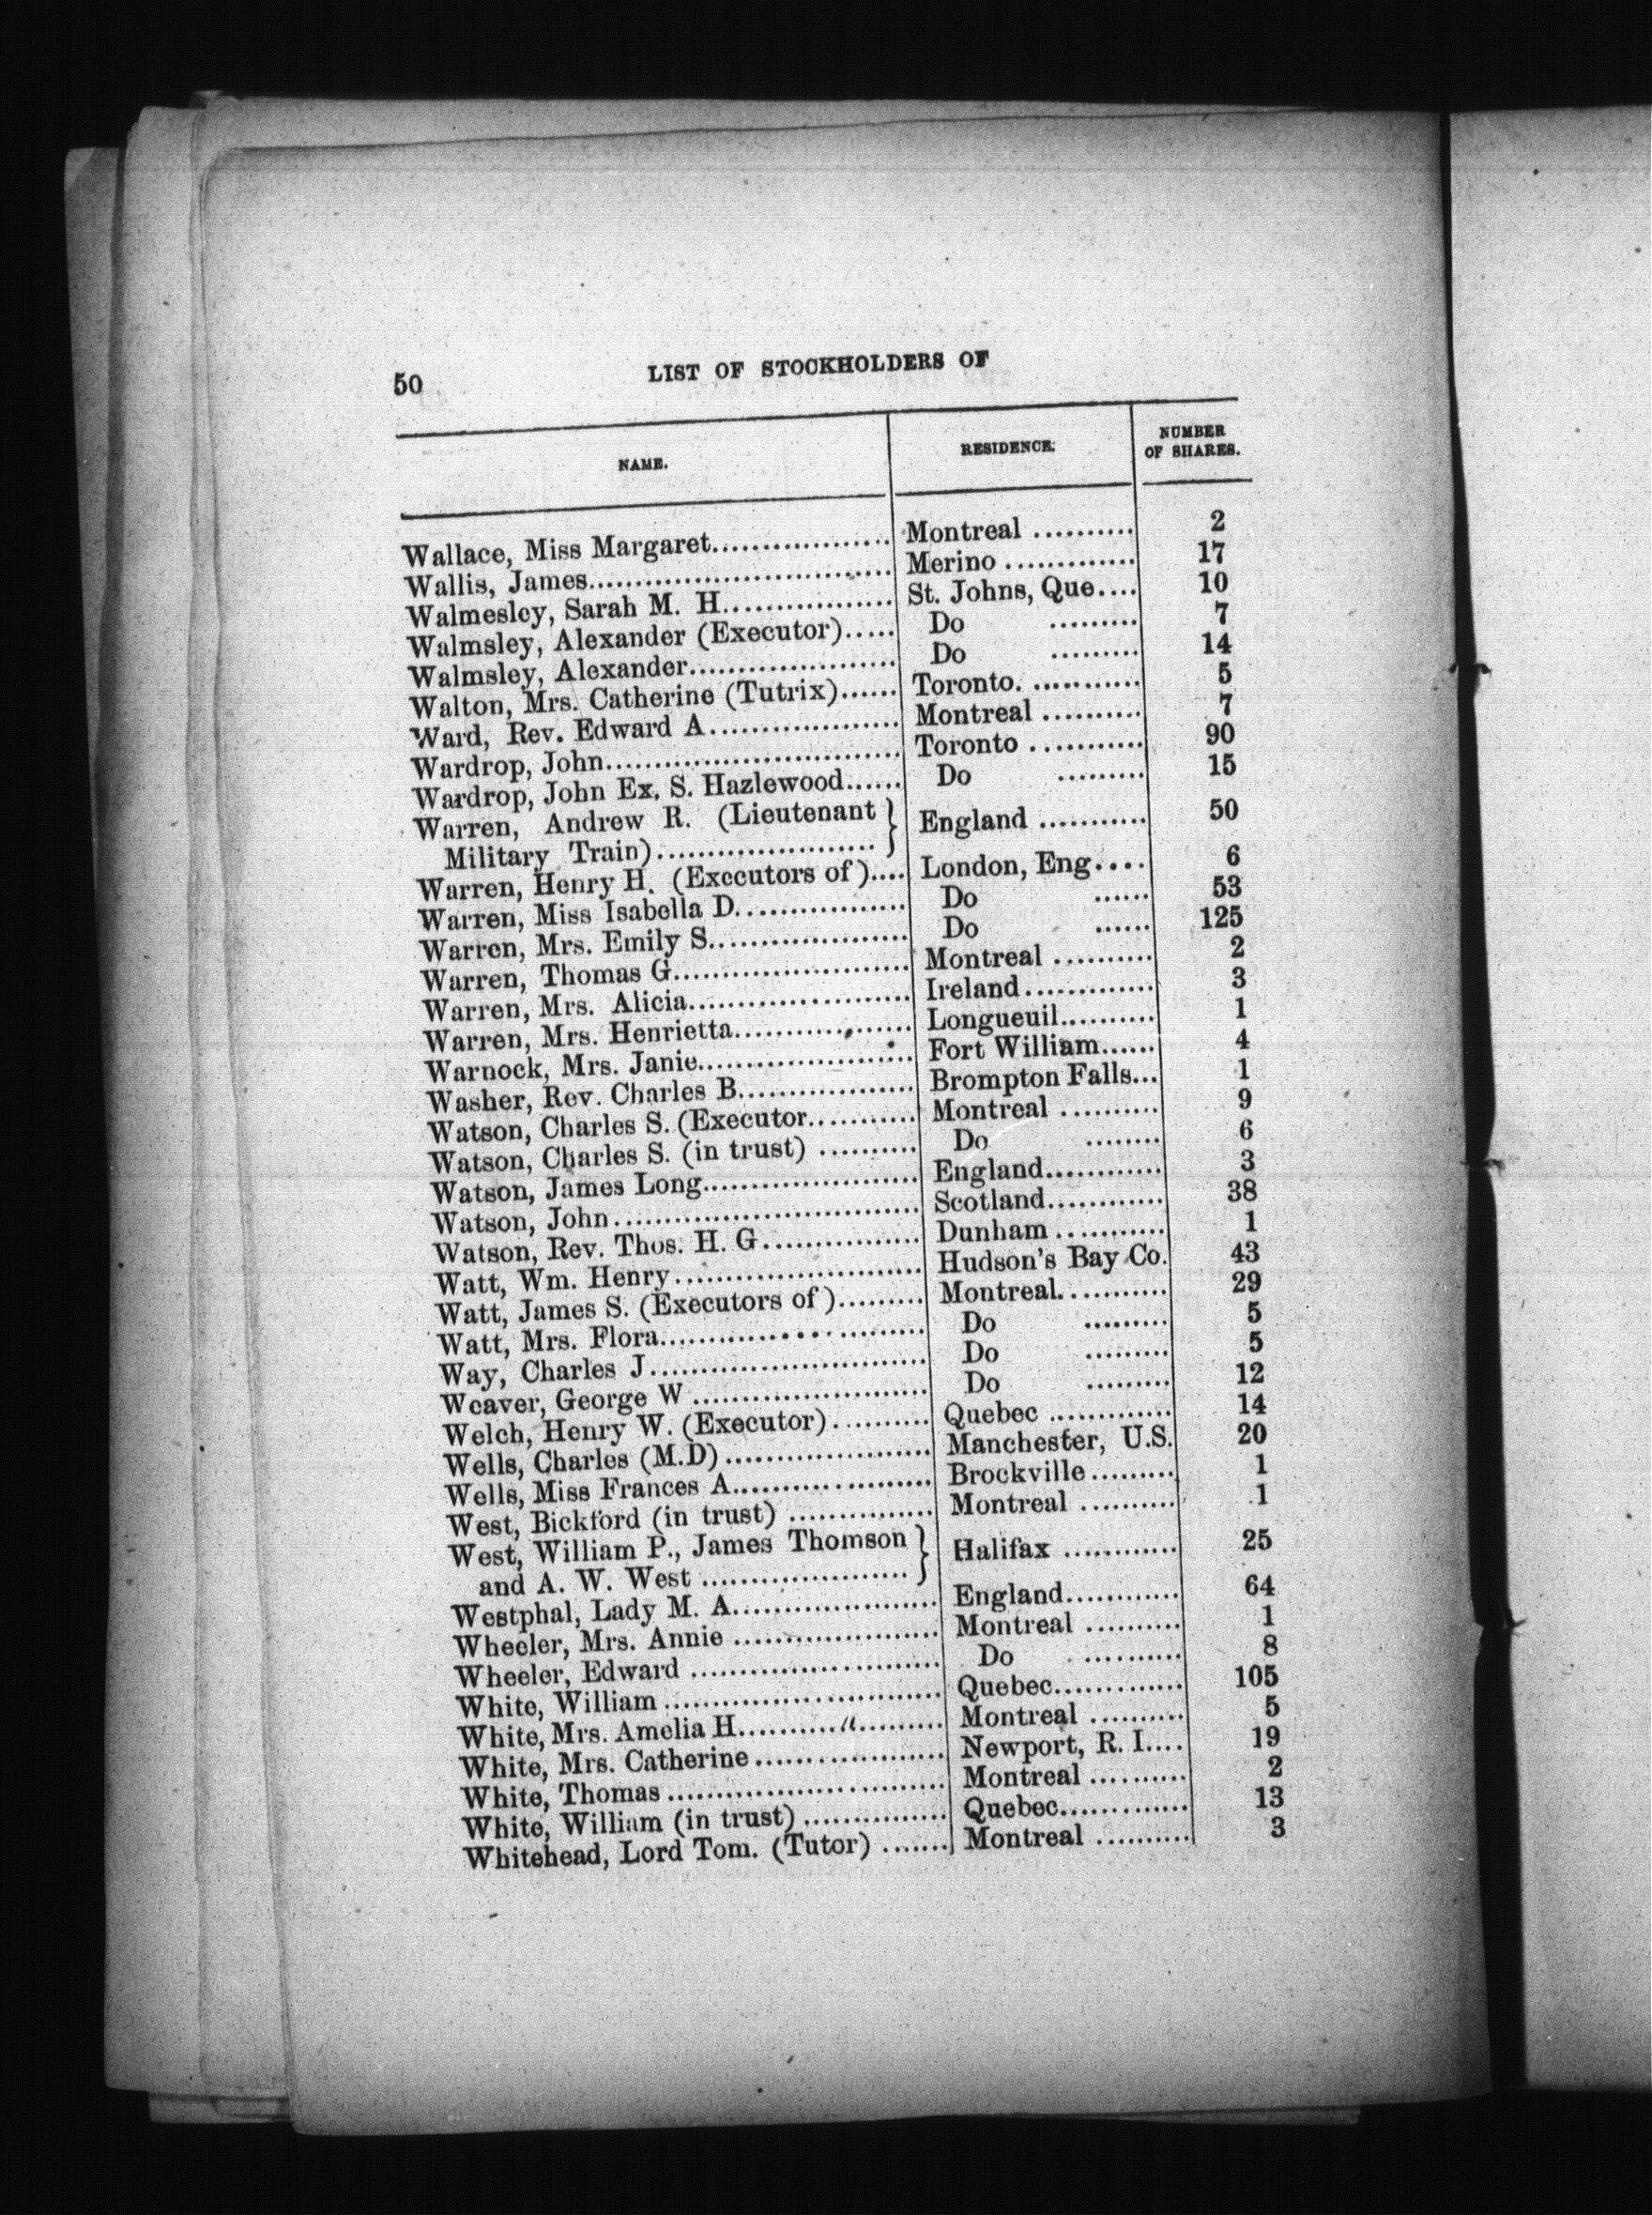 50 LIST OF STOCKHOLDERS OF
NAME. RESIDENCE. NUMBER OF SHARES.
Wallace, Miss Margaret.................. Montreal .......... 2
Wallis, James.............................. Merino ............. 17
Walmesley, Sarah M. H................. St. Johns, Que.... 10
Walmsley, Alexander (Executor)..... Do ......... 7
Walmsley, Alexander..................... Do ......... 14
Walton, Mrs. Catherine (Tutrix)...... Toronto. ........... 5
Ward, Rev. Edward A................... Montreal .......... 7
Wardrop, John............................. Toronto ........... 90
Wardrop, John Ex. S. Hazlewood...... Do ......... 15
Warren, Andrew R. (Lieutenant } England ........... 50
Military Train)......................
Warren, Henry H. (Executors of ).... London, Eng.... 6
Warren, Miss Isabella D................. Do ...... 53
Warren, Mrs. Emily S.................... Do ...... 125
Warren, Thomas G....................... Montreal .......... 2
Warren, Mrs. Alicia...................... Ireland............. 3
Warren, Mrs. Henrietta.................. Longueuil.......... 1
Warnock, Mrs. Janie..................... Fort William...... 4
Washer, Rev. Charles B................. Brompton Falls... 1
Watson, Charles S. (Executor........... Montreal .......... 9
Watson, Charles S. (in trust) .......... Do ........ 6
Watson, James Long..................... England............ 3
Watson, John.............................. Scotland............ 38
Watson, Rev. Thos. H. G................ Dunham ........... 1
Watt, Wm. Henry........................ Hudson's Bay Co. 43
Watt, James S. (Executors of )......... Montreal........... 29
Watt, Mrs. Flora.......................... Do ......... 5
Way, Charles J............................ Do ......... 5
Weaver, George W ....................... Do ......... 12
Welch, Henry W. (Executor).......... Quebec ............. 14
Wells, Charles (M.D)..................... Manchester, U.S. 20
Wells, Miss Frances A.................... Brockville......... 1
West, Bickford (in trust) ............... Montreal .......... 1
West, William P., James Thomson } Halifax ............ 25
and A. W. West .....................
Westphal, Lady M. A.................... England............ 64
Wheeler, Mrs. Annie ..................... Montreal .......... 1
Wheeler, Edward ......................... Do .......... 8
White, William............................ Quebec............. 105
White, Mrs. Amelia H.................... Montreal .......... 5
White, Mrs. Catherine................... Newport, R. I.... 19
White, Thomas............................ Montreal .......... 2
White, William (in trust)............... Quebec............. 13
Whitehead, Lord Tom. (Tutor) ....... Montreal .......... 3